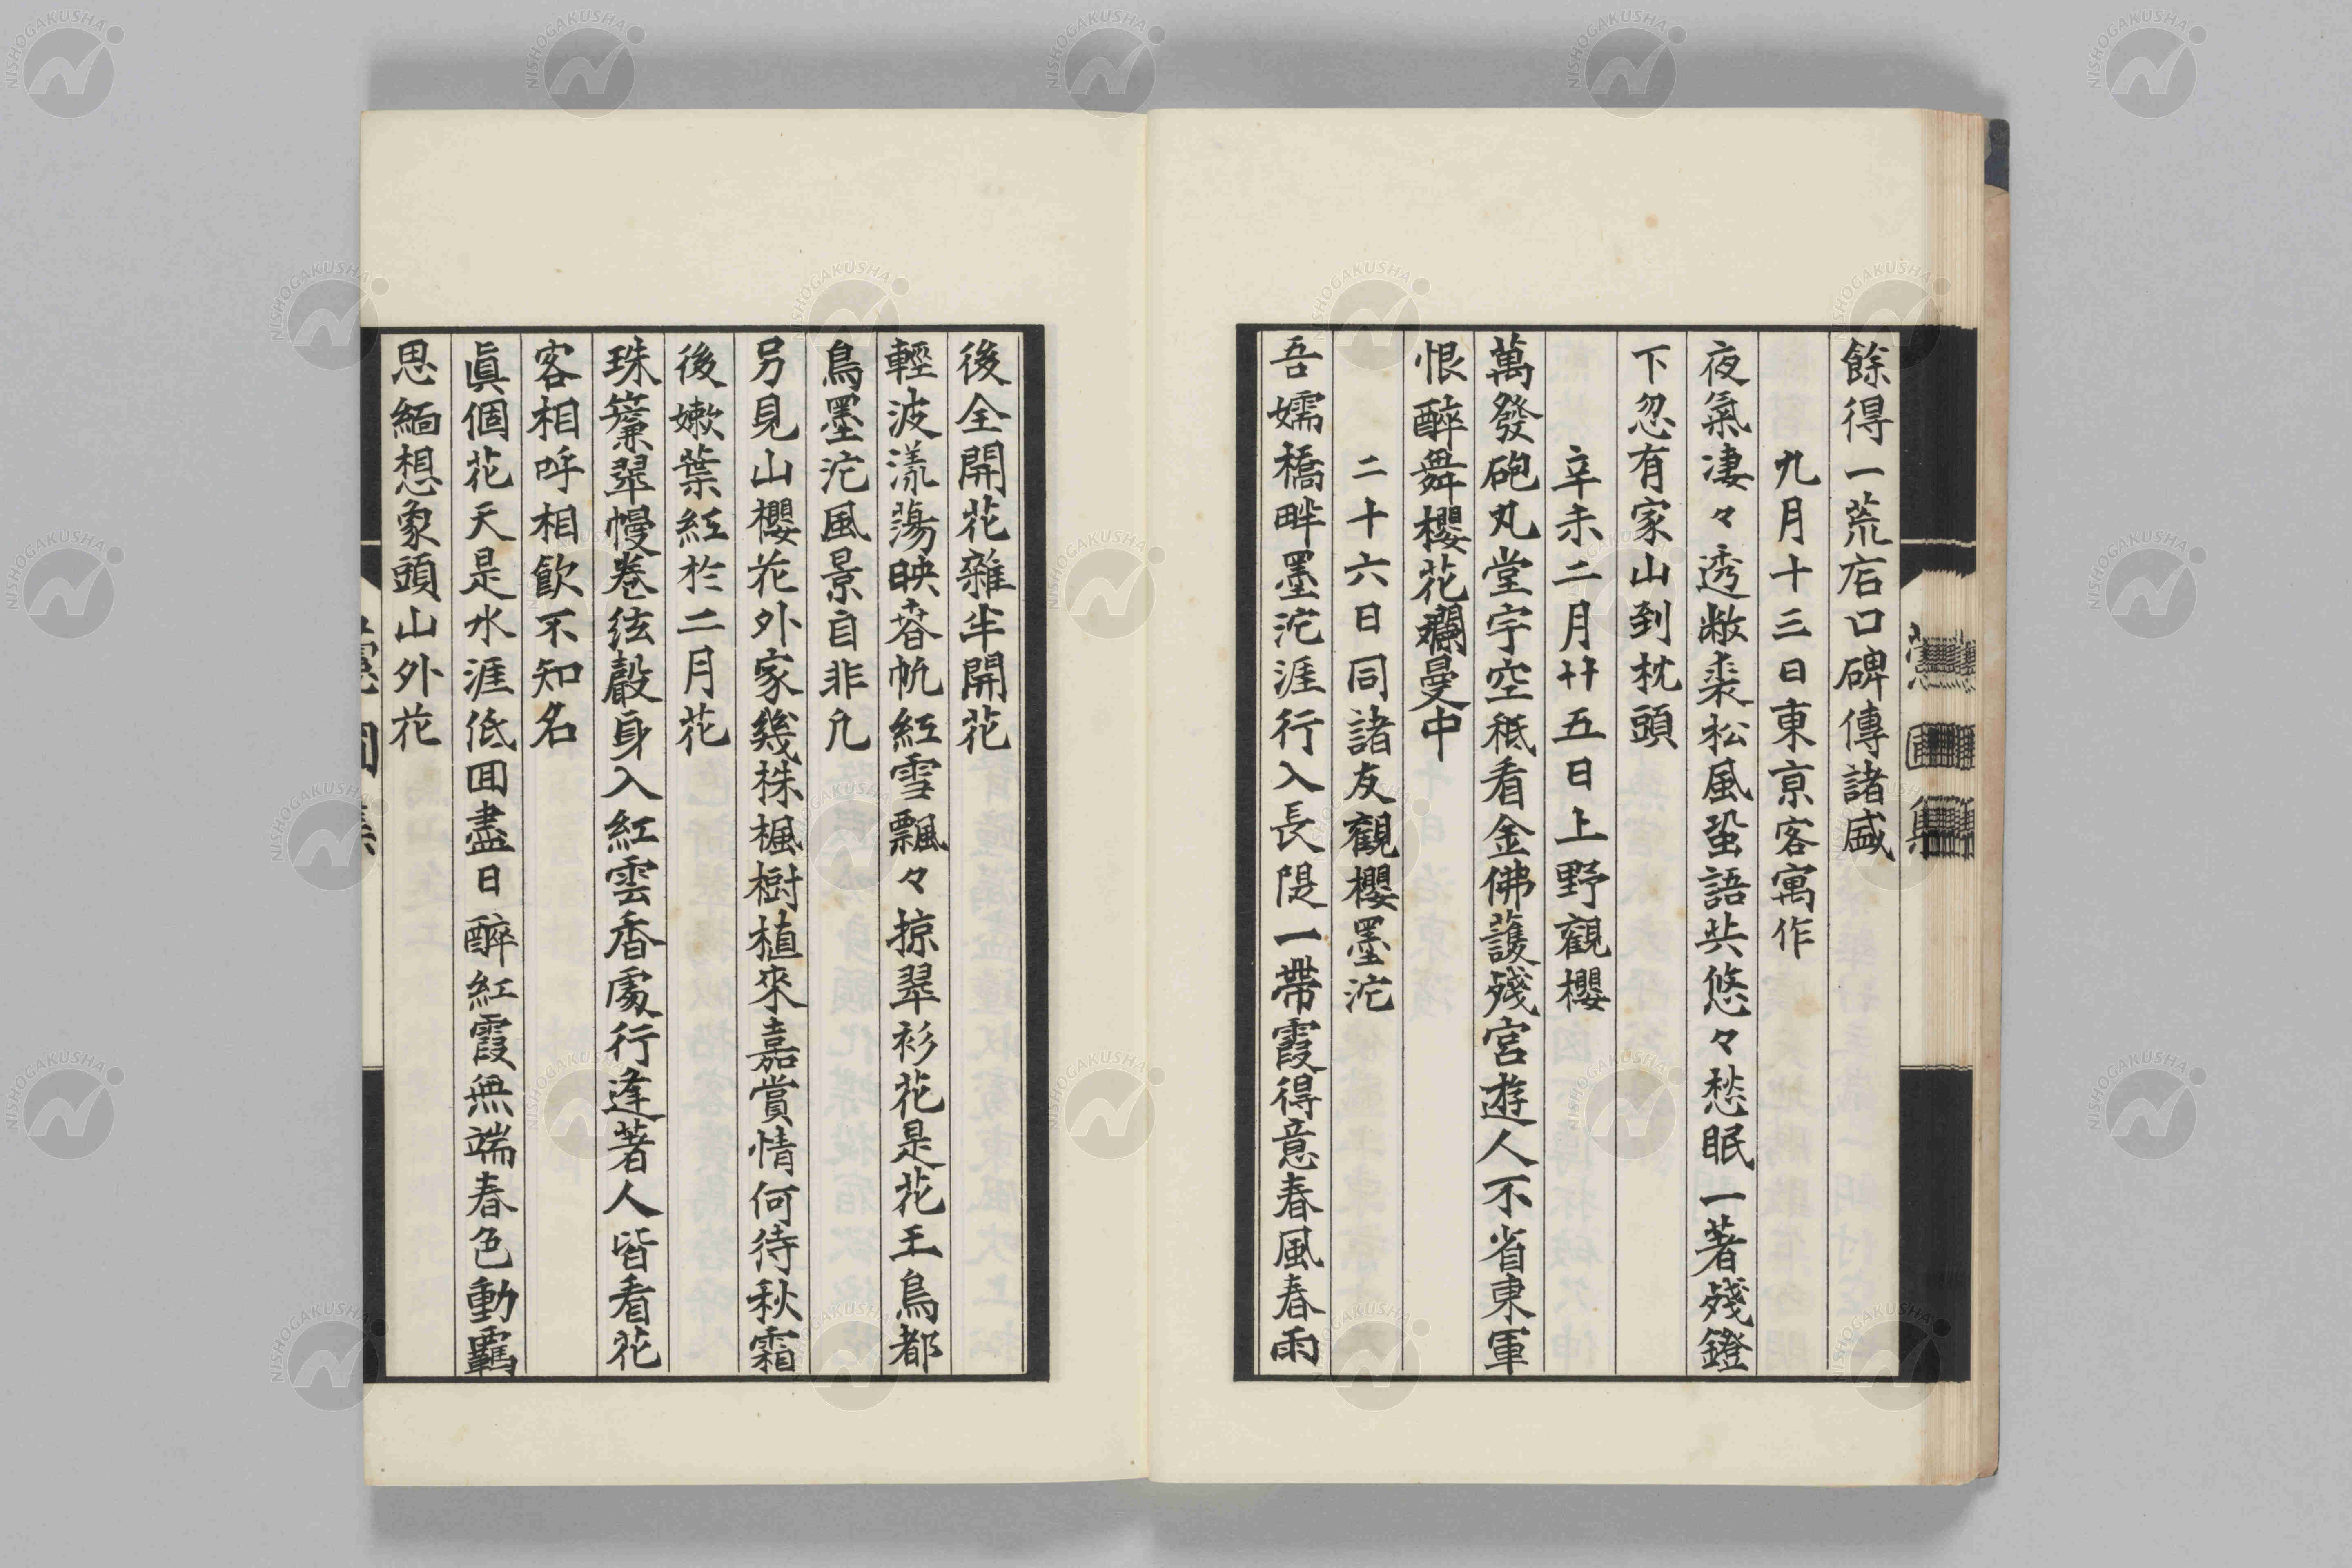 餘得一荒店口碑傳諸盛
九月十三日東亰客寓作
夜氣凄々透敝裘松風蛩語共悠々愁眠一著殘鐙
下忽有家山到枕頭
辛未二月廿五日上野觀櫻
萬發砲丸堂宇空秪看金佛護殘宮遊人不省東軍
恨醉舞櫻花爛曼中
二十六日同諸友觀櫻墨沱
吾嬬橋畔墨沱涯行入長隄一帶霞得意春風春雨
後全開花雜半開花
輕波漾蕩映春帆紅雪飄々掠翠衫花是花王鳥都
鳥墨沱風景自非凡
另見山櫻花外家幾株楓樹植來嘉賞情何待秋霜
後嫩葉紅於二月花
珠簾翠幔卷絃聲身入紅雲香處行逢著人皆看花
客相呼相飲不知名
眞個花天是水涯低回盡日醉紅霞無端春色動羈
思緬想象頭山外花
園集
NISHOGAKUSHA